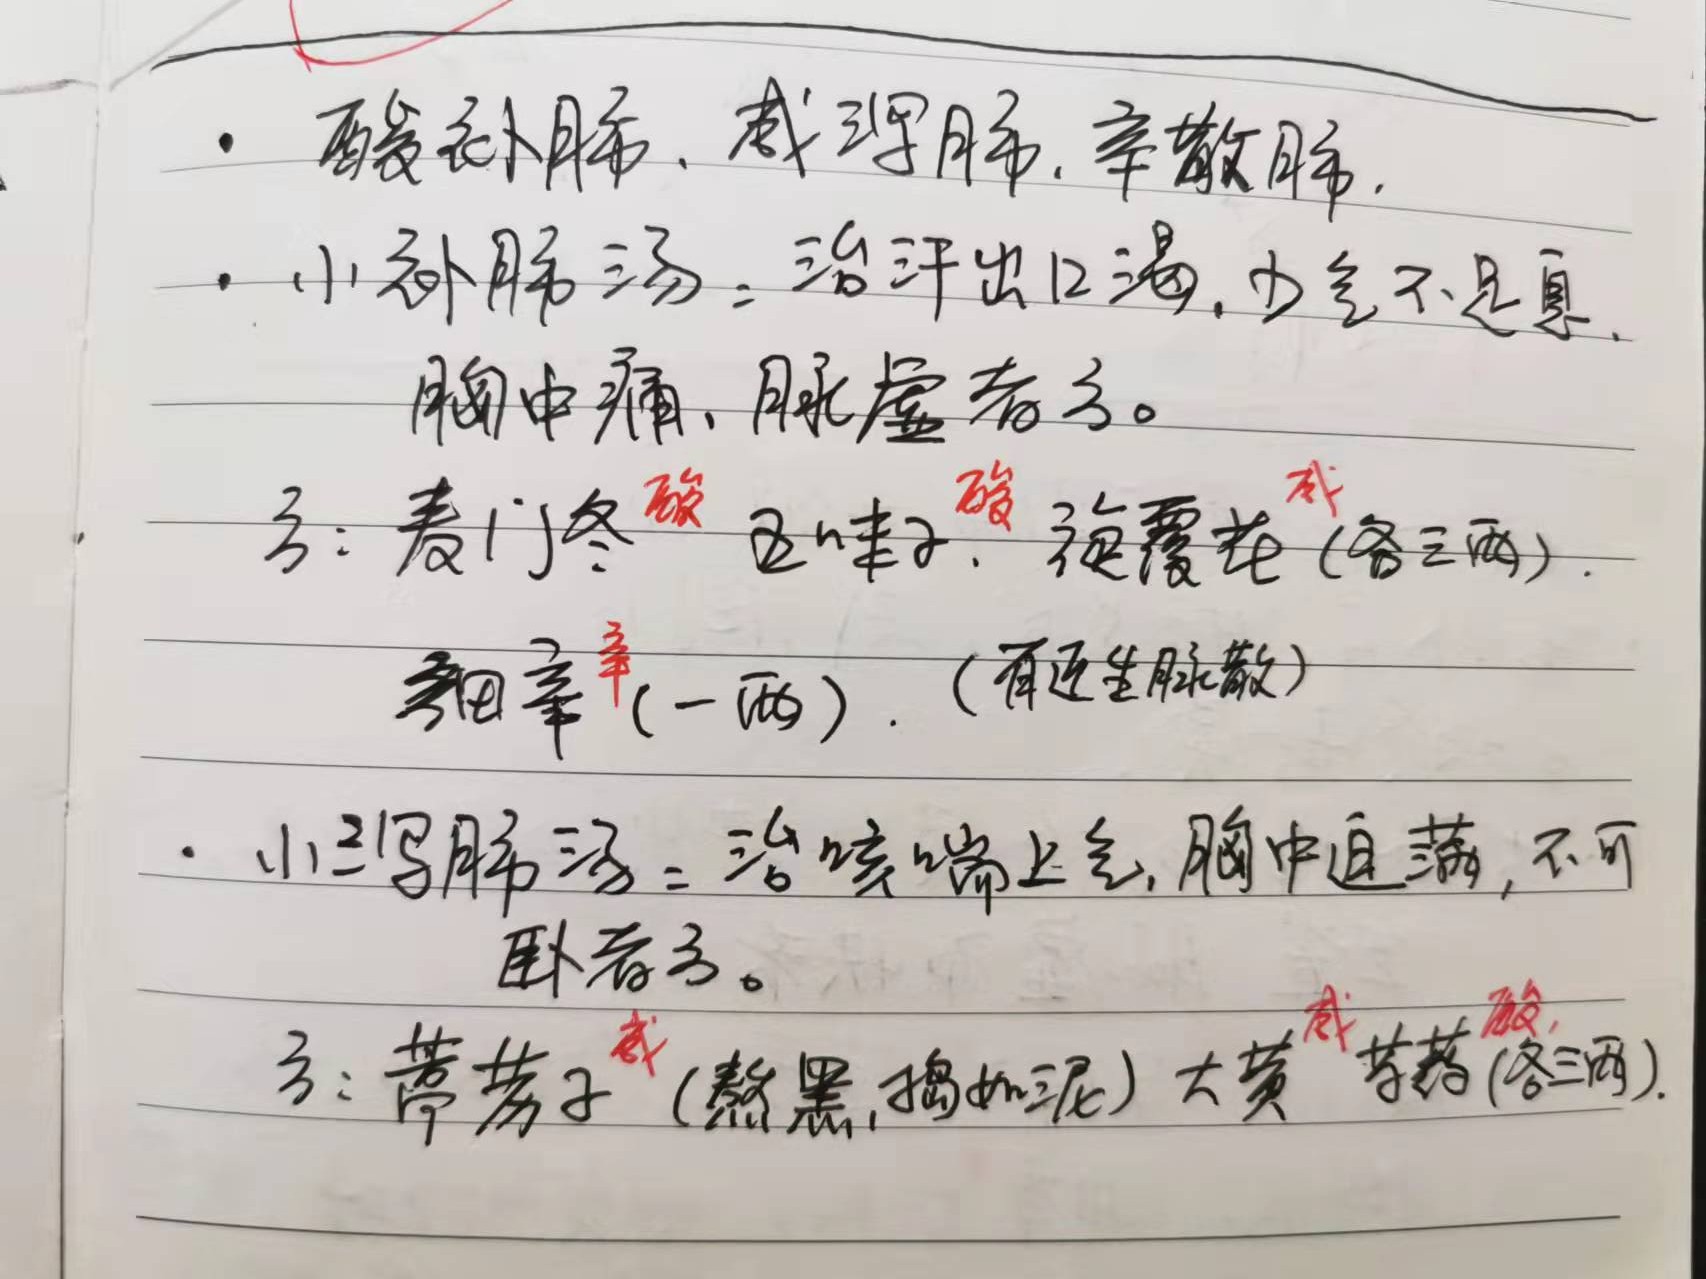 · 酸补肺、咸泻肺、辛散肺.
· 小补肺汤：治汗出口渴，少气不足息、
胸中痛、脉虚者方。
方：麦门冬酸 五味子酸、旋覆花咸（各三两）.
细辛辛（一两）.（有近生脉散）
· 小泻肺汤：治咳喘上气，胸中迫满，不可
卧者方。
方：葶苈子咸（熬黑，捣如泥）大黄咸 芍药酸（各三两）.